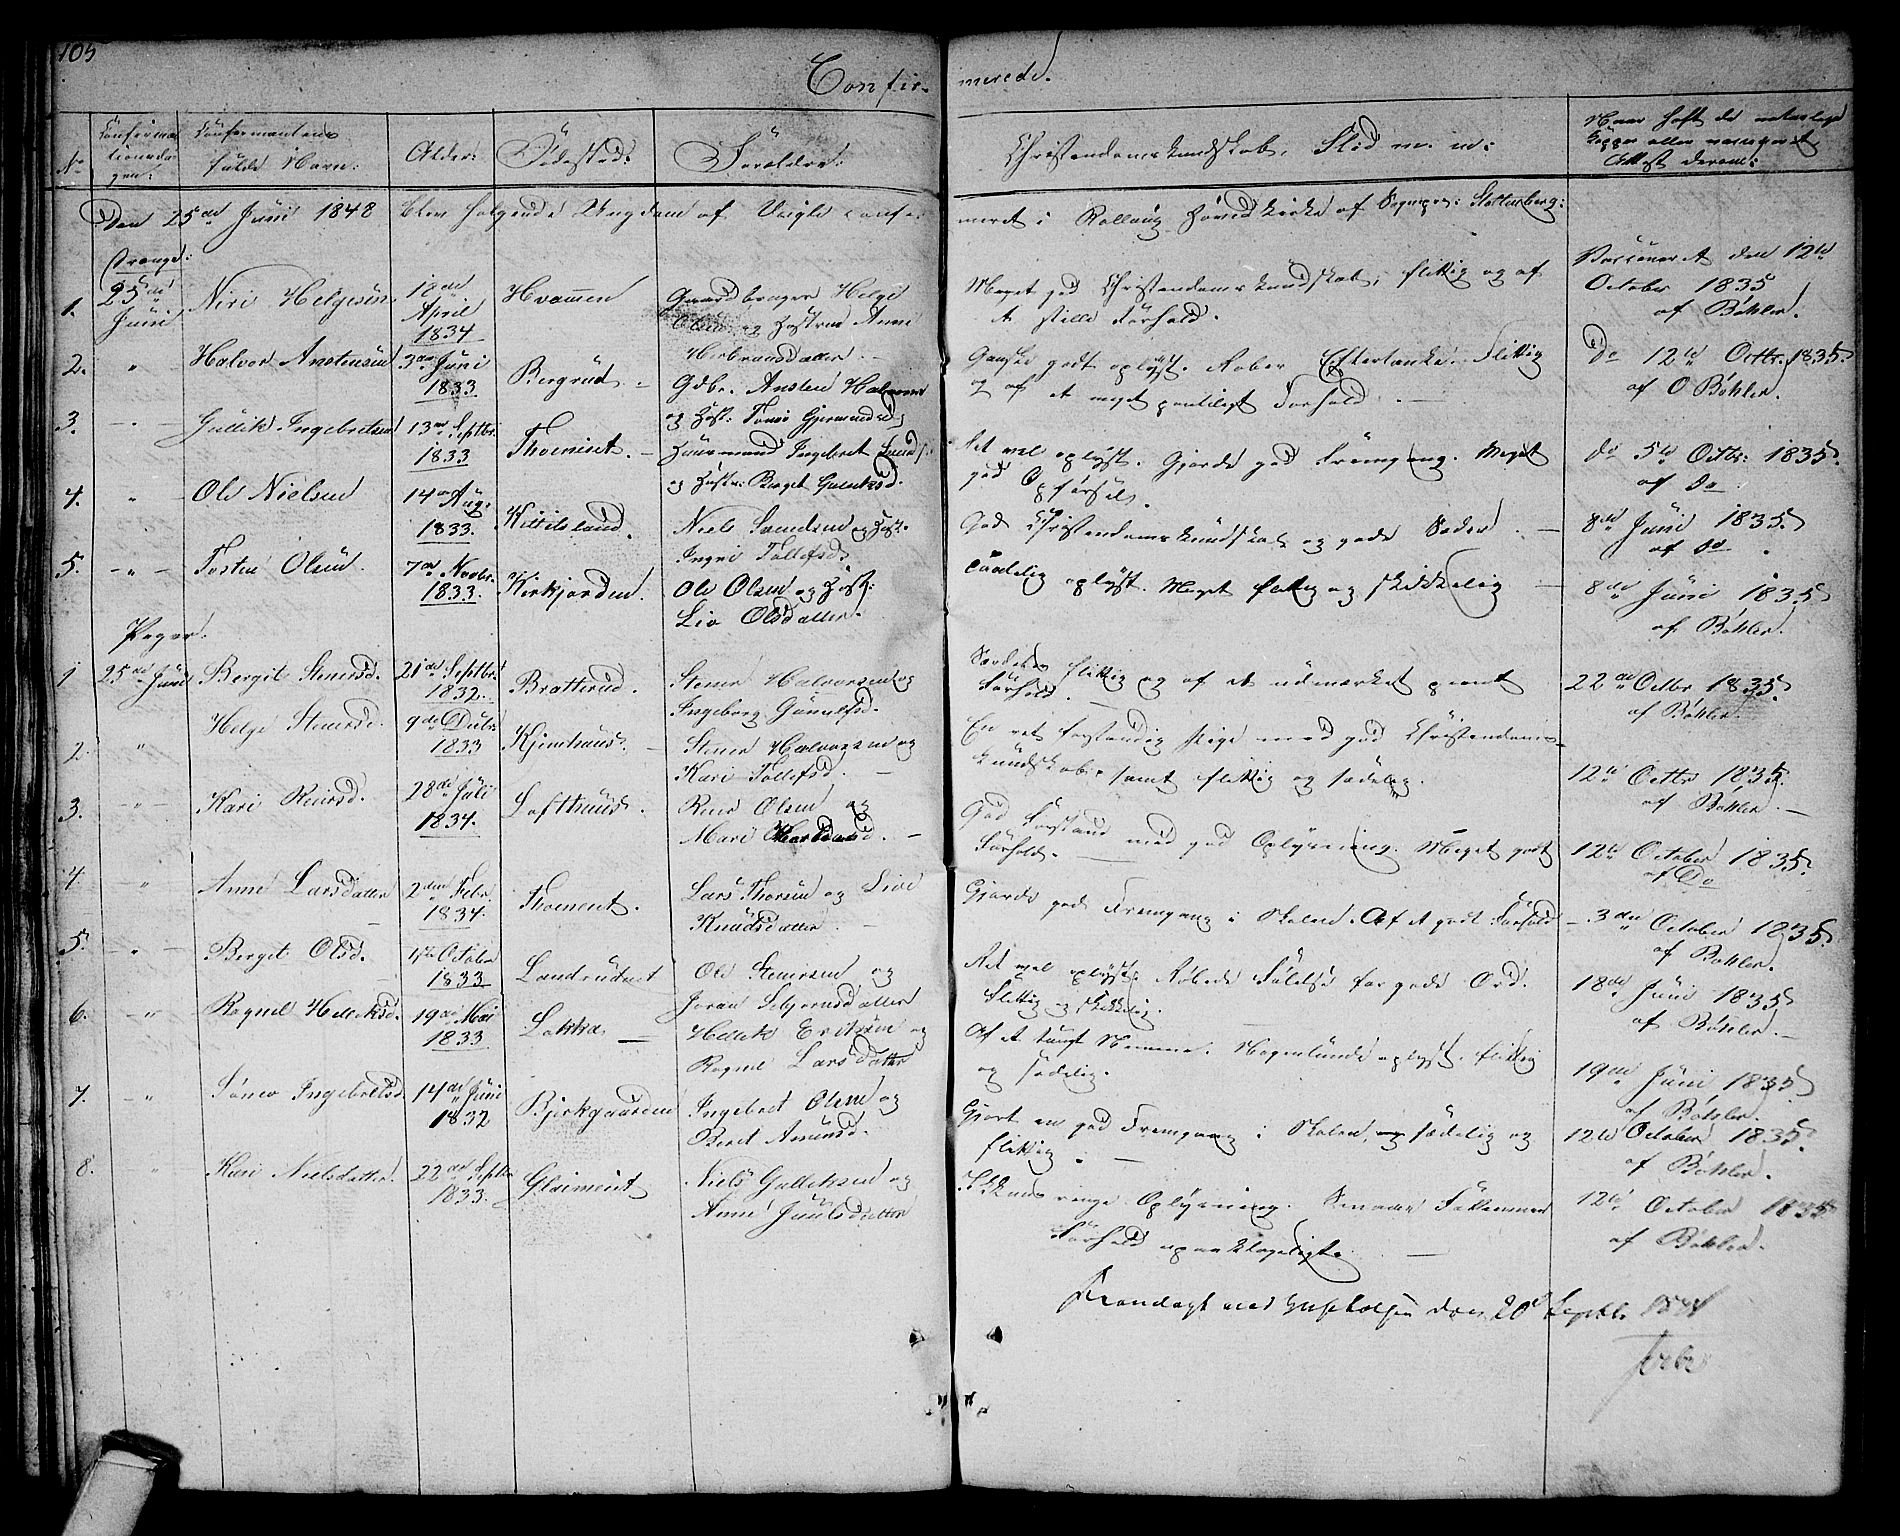 105
Confir- merede.
No
Confirma-
tionsda-
gen:
Confirmantens
fulde Navn:
Alder:
Födested:
Forældre:
Christendomskundskab, Flid m. m:
Naar havt de naturlige
Kopper eller vaccineret
Attest derom:
Den 25de Juni 1848 blev følgende Ungdom af Uvdal confir-
meret i Rollaug Hovedkirke af Sognepr: Stoltenberg:
Drenge:
1. 25de Juni
Niri Helgesen
18de April 1834
Hvammen
Gaardbruger Helge
Olsen og Hustrue Anne
Herbransdatter.
Meget god Christendomskundskab, flittig og af
et stille Forhold.
Vaccineret den 12te
October 1835
af Bøhler.
2. "
Halvor Anstensen
3die Juni 1833
Bergrud.
Gdbr. Ansten Halvorsen
og Hust: Tone Gjermundsd.
Ganske godt oplyst. Flittig
og af et meget Forhold.
Do 12te Octbr. 1835.
af O Bøhler.
3. "
Gullik Ingebretsen
13de Septbr. 1833
Thoeniset.
Huusmand Ingebret
og Hustr: Berget Gulliksd.
Ret vel oplyst. Gjorde god Fremgang. Meget
god Opførsel.
do 5te Octbr: 1835.
af do
4. "
Ole Nielsen
14de Aug: 1833.
Kittilsland.
Niels Svendsen og Hust:
Ingri Tollefsd.
God Christendomskundskab og gode Sæder.
8de Juni 1835
af do.
5. "
Tosten Olsen.
7de Novbr. 1833.
Kirkjorden.
Ole Olsen og Hust:
Liv Olsdatter.
Taalelig oplyst. Meget flittig og skikkelig
8de Juni 1835
af Bøhler.
Piger:
1 25de Juni
Bergit Stenersd.
21de Septbr. 1832.
Bratterud.
Stener Halvorsen og
Ingeborg Gunulfsd.
Særdeles flittig og af et udmærket pænt
Forhold.
22de Octbr 1835.
af Bøhler.
2. "
Helge Stenersd.
9de 1833
Kjemhuus.
Stener Halvorsen og
Kari Tollefsd.
En ret forstandig Pige med god Christendoms-
kundskab, samt flittig og sædelig.
12te Octbr 1835.
af Bøhler.
3. "
Kari Reiersd.
28de Juli 1834.
Lofthuus.
Reier Olsen og
Mari
God Forstand med god Oplysning. Meget godt
Forhold.
12te October 1835.
af Do
4. "
Anne Larsdatter
2den Febr 1834.
Thoement.
Lars Thorsen og Live
Knudsdatter.
Gjorde god Fremgang i Skolen. Af et godt Forhold
3die October 1835.
af Bøhler.
5. "
Berget Olsd.
October 1833
Landrudeiet
Ole Stenersen og
Joran
Ret vel oplyst. Følelse for Guds Ord.
Flittig og skikkelig.
18de Juni 1835
af Bøhler.
6. "
Ragnil Helleiksd.
19de Mai 1833
Lokka
Helleik Eriksen og
Ragnil Larsdatter
Af et tungt Nemme. Nogenlunde oplyst. Flittig
og sædelig.
19de Juni 1835
af Bøhler.
7. "
Sønov Ingebretsd.
14de Juni 1832
Bjerkgaarden
Ingebret Olsen og
Beret Amundsd.
Gjort en god Fremgang i Skolen, og sædelig og
flittig.
12te October 1835
af Bøhler.
8. "
Kari Nielsdatter.
22de Septbr 1833.
Niels Gulliksen og
Anne Juulsdatter
Ikkun ringe Oplysning.
Forhold upaaklageligt.
12te October 1835
af Bøhler.
den 20de Septbr.